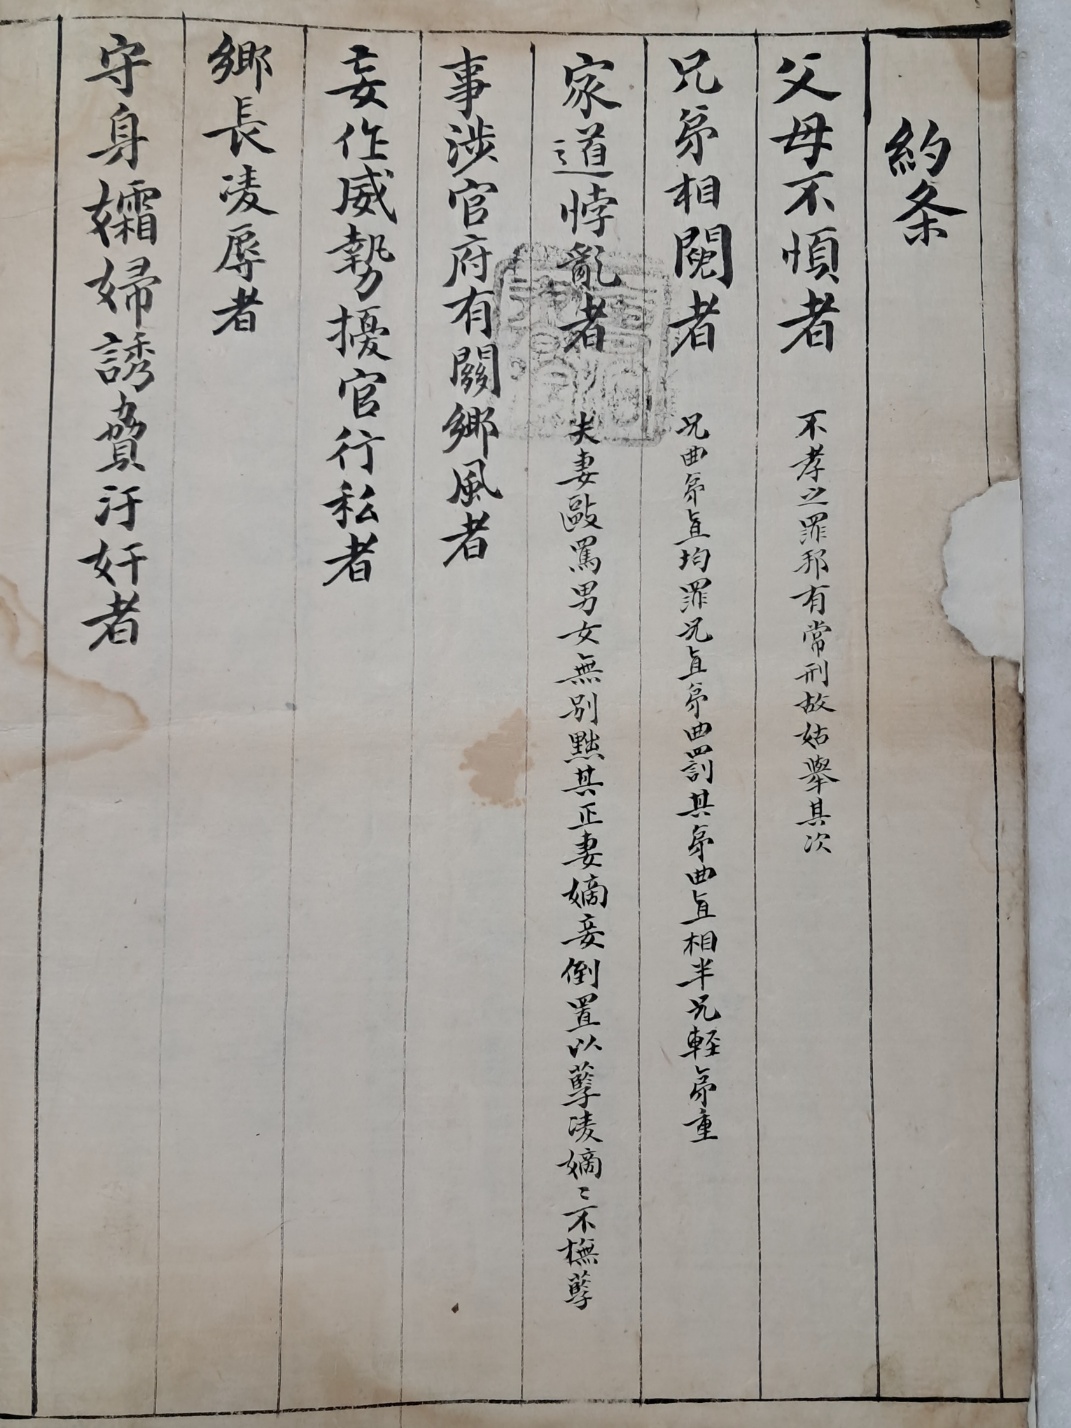 約条
父母不順者 不孝之罪邦有常刑故姑舉其次
兄弟相䦧者 兄曲弟直均罪兄直弟曲罰其弟曲直相半兄輕弟重
家道悖亂者 夫妻毆罵男女無別黜其正妻嫡妾倒置以孼凌嫡〻不撫孼
事涉官府有關鄉風者
妄作威勢擾官行私者
鄉長凌辱者
守身孀婦誘脅汙奸者